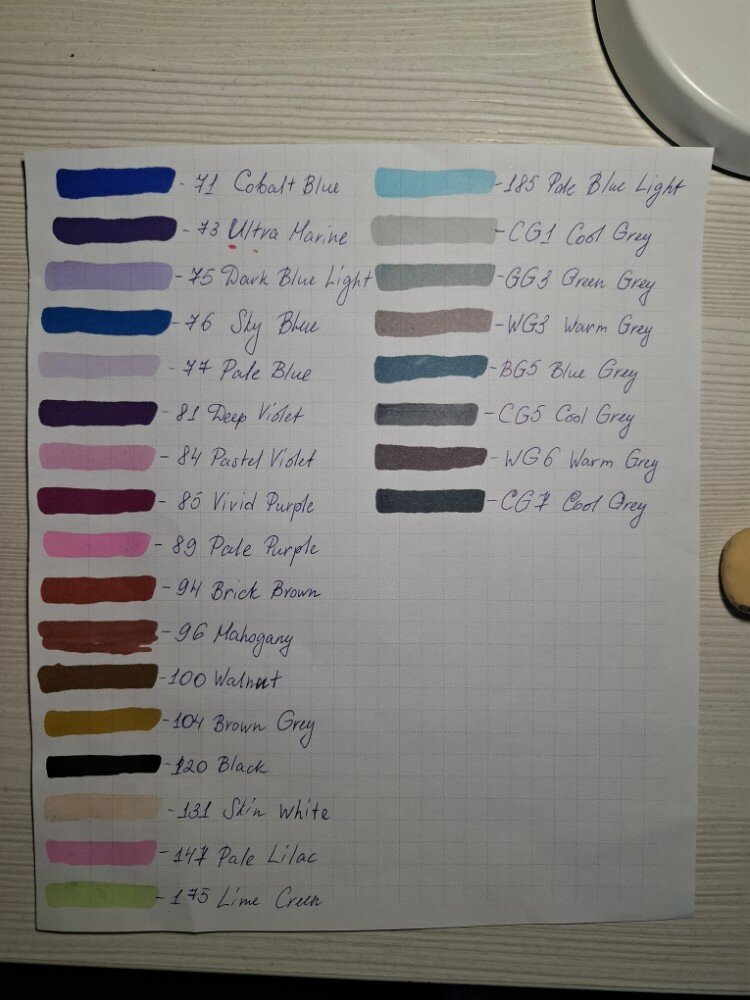 - 71 Cobalt Blue
- 73 Ultra Marine
- 75 Dark Blue Light
- 76 Sky Blue
- 77 Pale Blue
- 81 Deep Violet
- 84 Pastel Violet
- 85 Vivid Purple
- 89 Pale Purple
- 94 Brick Brown
- 96 Mahogany
- 100 Walnut
- 104 Brown Grey
- 120 Black
- 131 Skin White
- 147 Pale Lilac
- 175 Lime Green
- 185 Pale Blue Light
- CG1 Cool Grey
- GG3 Green Grey
- WG3 Warm Grey
- BG5 Blue Grey
- CG5 Cool Grey
- WG6 Warm Grey
- CG7 Cool Grey